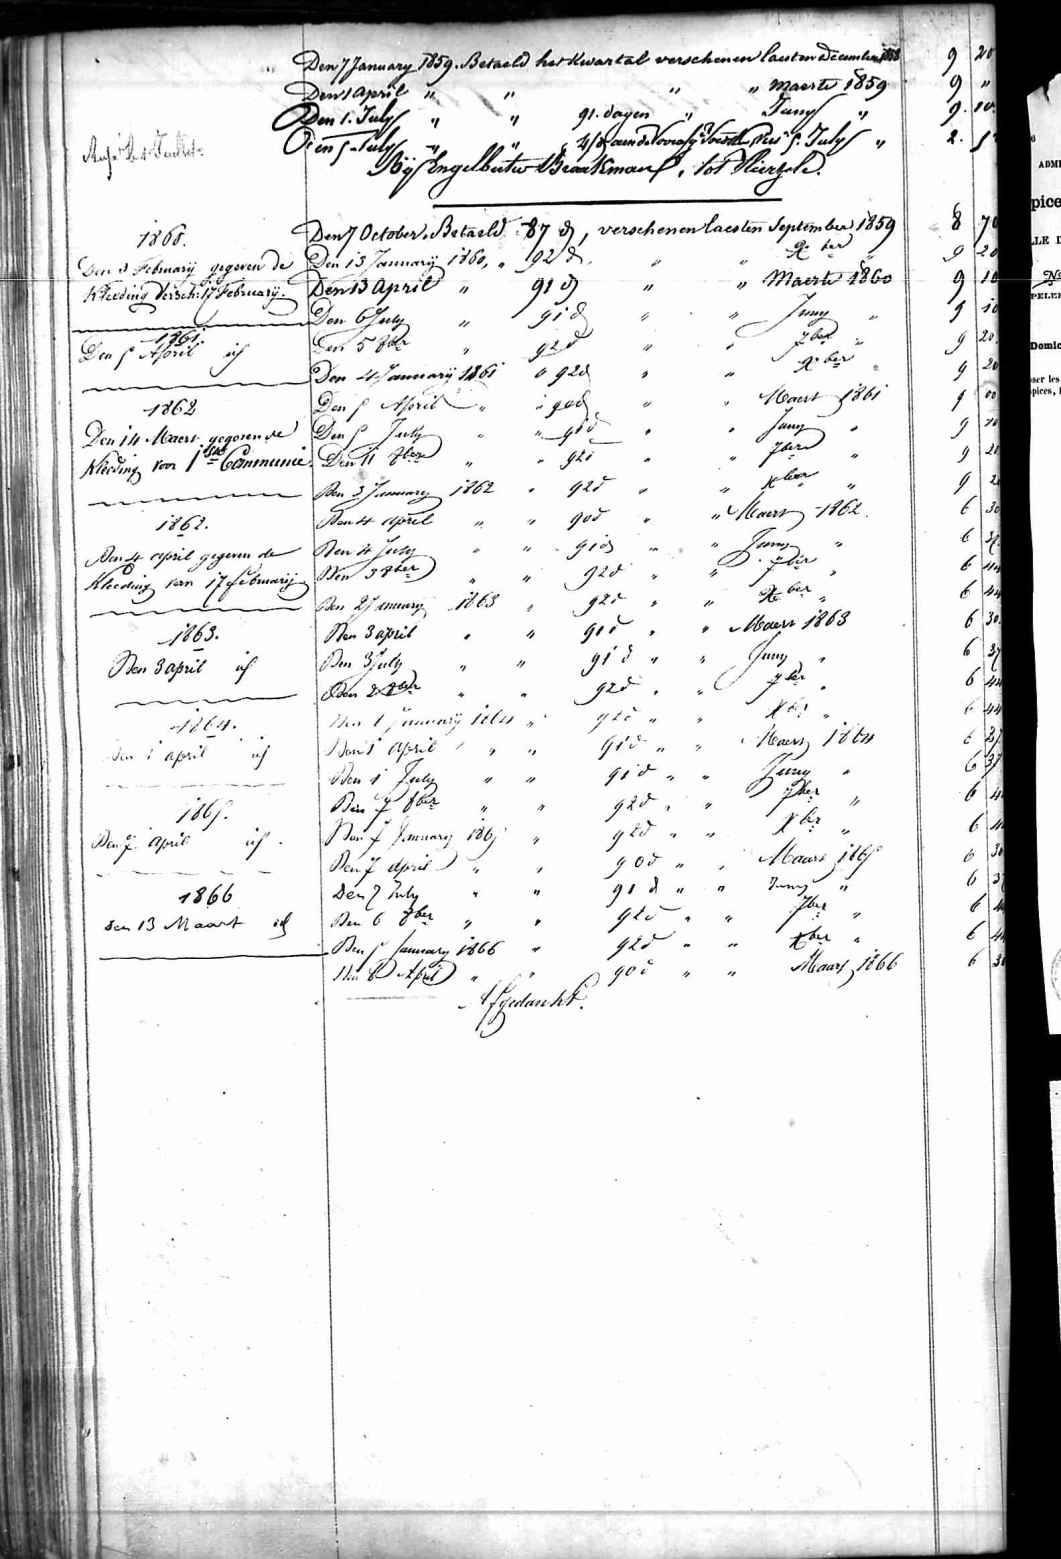 Den 7 January 1859. Betaeld het kwartal verschenen laesten December 1858 9 20
Den 1 April " " " " Maerte 1859 9 "
Den 1. July " " 91. dagen " Juny " 9. 10
Den 5 July " " July " 2.
Bij Engelbertus Braakman, tot
Den 7 October. Betaeld 87 d, verschenen laesten September 1859 8 70
1860.
Den 13 January 1860, " 92 d. " " Xber " 9 20
Den 3 February gegeven de
Kleeding Versch: 17 February.
Den 13 April " 91 d " " Maerte 1860 9 10
Den 6 July " 91 d " " Juny " 9 10
1861.
Den 5 April id
Den 5 8ber " 92 d " " 7ber " 9 20
Den 4 January 1861 " 92 d " " Xber " 9 20
Den 5 April " " 90 d " " Maert 1861 9 00
1862
Den 14 Maert gegeven de
Kleeding voor 1ste Communie.
Den 5 July " " 91 d " " Juny " 9 10
Den 11 8ber " " 92 d " " 7ber " 9 20
Den 3 January 1862 " 92 d " " Xber " 9 20
1862.
Den 4 april gegeven de
Kleeding van 17 february
Den 4 april " " 90 d " Maert 1862 6 30
Den 4 July " " 91 d " " Juny " 6 37
Den 3 8ber " " 92 d " " 7ber " 6 44
Den 2 January 1863 " 92 d " " Xber " 6 44
1863.
Den 3 april id
Den 3 april " " 90 d " " Maert 1863 6 30
Den 3 July " " 91 d " " Juny " 6 37
Den 2 8ber " " 92 d " " 7ber " 6 44
1864.
Den 1 april id
Den 1 January 1864 " 92 d " " Xber " 6 44
Den 1 April " " 91 d " " Maert 1864 6 37
Den 1 July " " 91 d " " Juny " 6 37
1865.
Den 7 april id.
Den 7 8ber " " 92 d " " 7ber " 6 4
Den 7 January 1865 " 92 d " " Xber " 6 4
Den 7 april " " 90 d " " Maart 1865 6 30
1866
den 13 Maart id
Den 7 July " " 91 d " " Juny " 6 37
Den 6 8ber " " 92 d " " 7ber " 6 4
Den 5 January 1866 " 92 d " " Xber " 6 44
Den 6 April " " 90 d " " Maart 1866 6 30
Afgedankt.